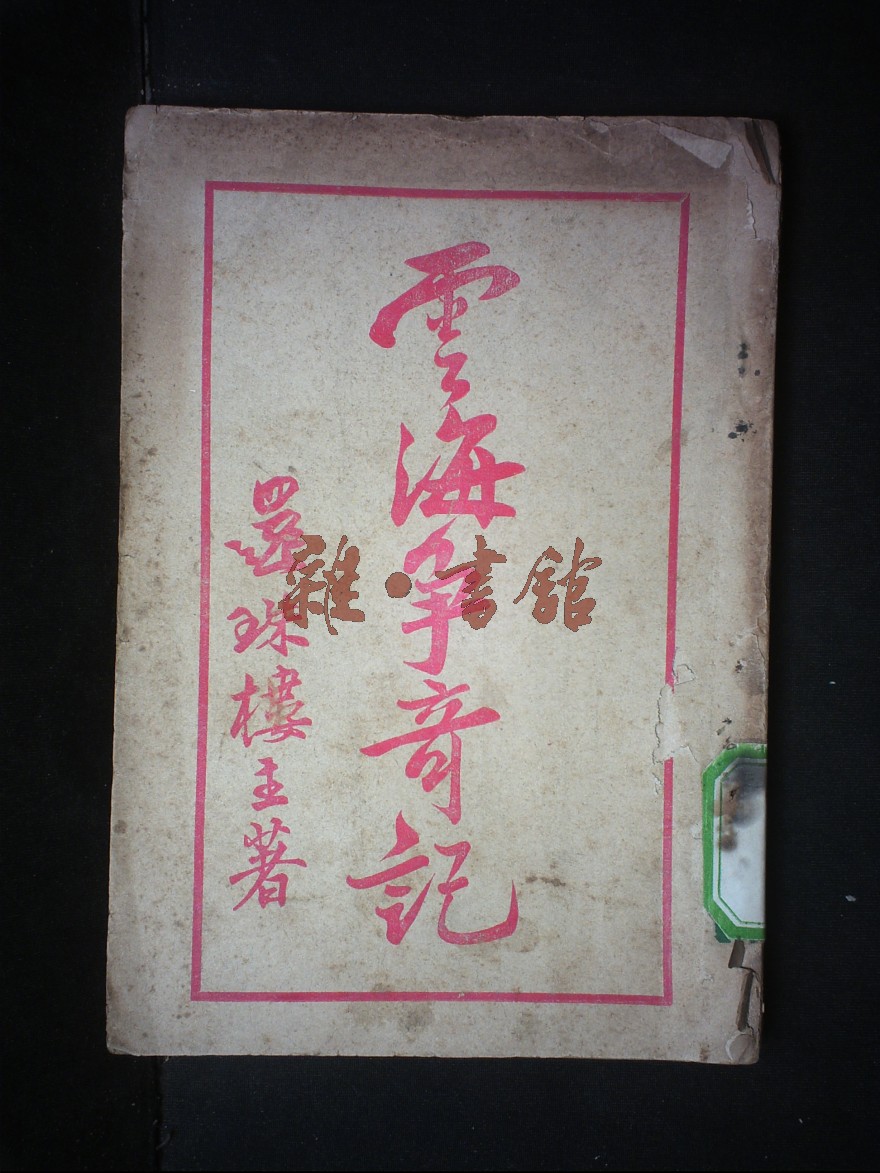 雲海爭奇記
還珠樓主著
雜·書館